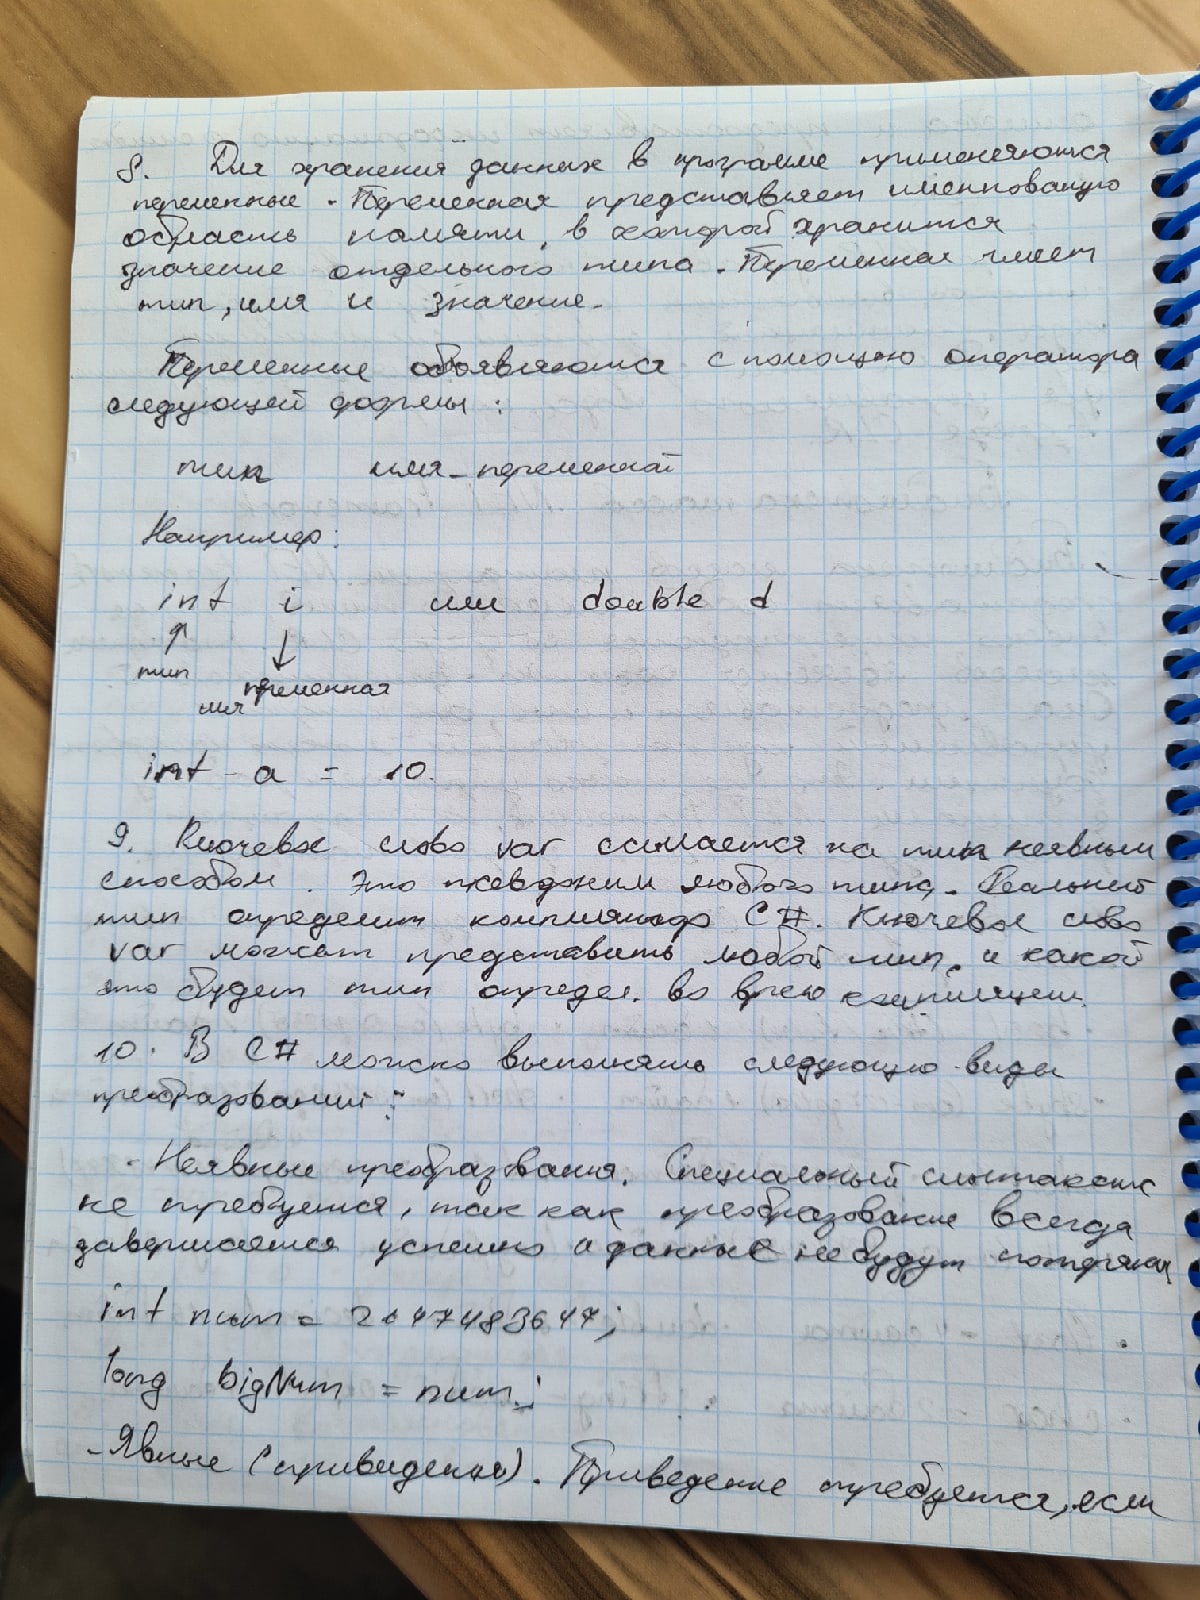 8. Для хранения данных в программе применяются
переменные. Переменная представляет именнованую
область памяти, в которой хранится
значение отдельного типа. Переменная имеет
тип, имя и значение.
Переменные объявляются с помощью оператора
следующей формы:
тип имя_переменной
Например:
int i или double d
тип
переменная
имя
int a = 10.
9. Ключевое слово var ссылается на тип неявным
способом. Это псевдоним любого типа. Реальный
тип определит компилятор C#. Ключевое слово
var может представить любой тип, и какой
это будет тип определ. во время
10. В C# можно выполнять следующую виды
преобразований:
- Неявные преобразвания. Специальный синтаксис
не требуется, так как преобразование всегда
завершается успешно и данные не будут потеряны
int num = 2147483647;
long bigNum = num;
- Явные (приведения). Приведение требуется, если